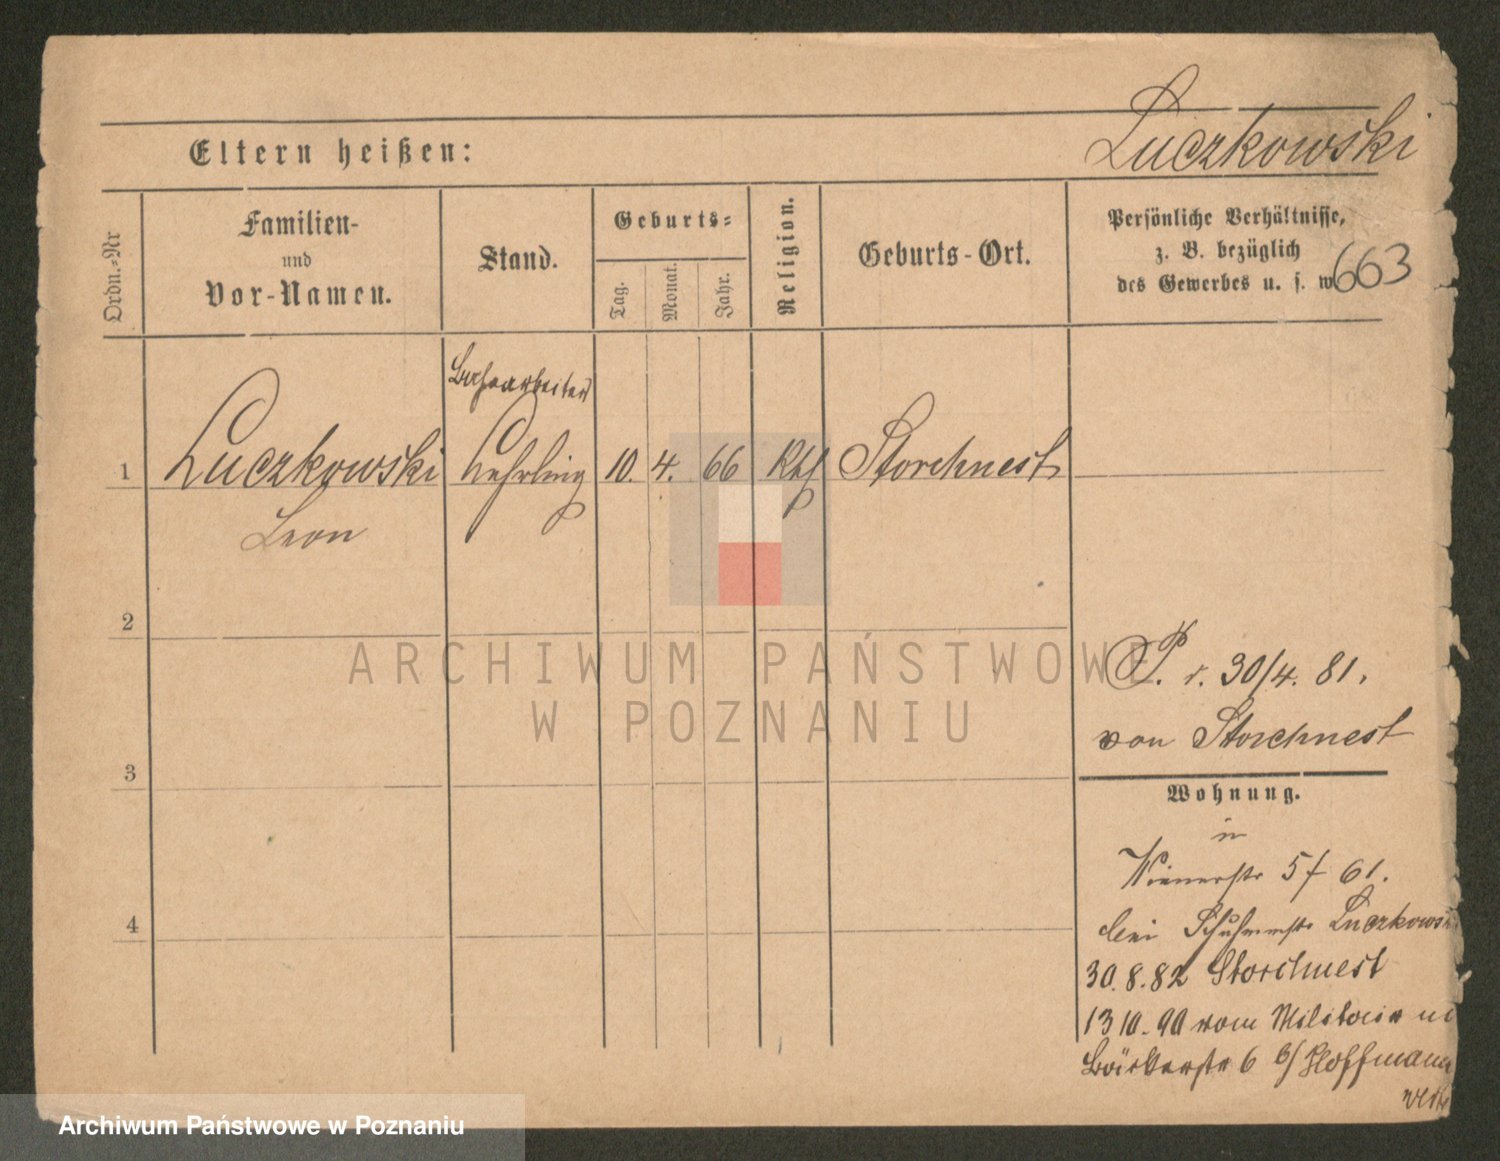 Luczkowski
Eltern heißen:
Ordn.-Nr
Familien-
und
Vor-Namen.
Stand.
Geburts-
Tag.
Monat.
Jahr.
Religion.
Geburts-Ort.
Persönliche Verhältnisse,
z. B. bezüglich
des Gewerbes u. s. w
663
1
Luczkowski
Leon
Lehrling
10.
4.
66
Kth
Storchnest
2
3
4
P. v. 30/4. 81.
von Storchnest
Wohnung.
in
Wienerstr 5 f 61.
bei Schuhmstr Luczkowski
30.8.82 Storchnest
13 10. 90 vom Militair
Bäckerstr 6 b/ Hoffmann
ARCHIWUM PAŃSTWOWE
W POZNANIU
Archiwum Państwowe w Poznaniu